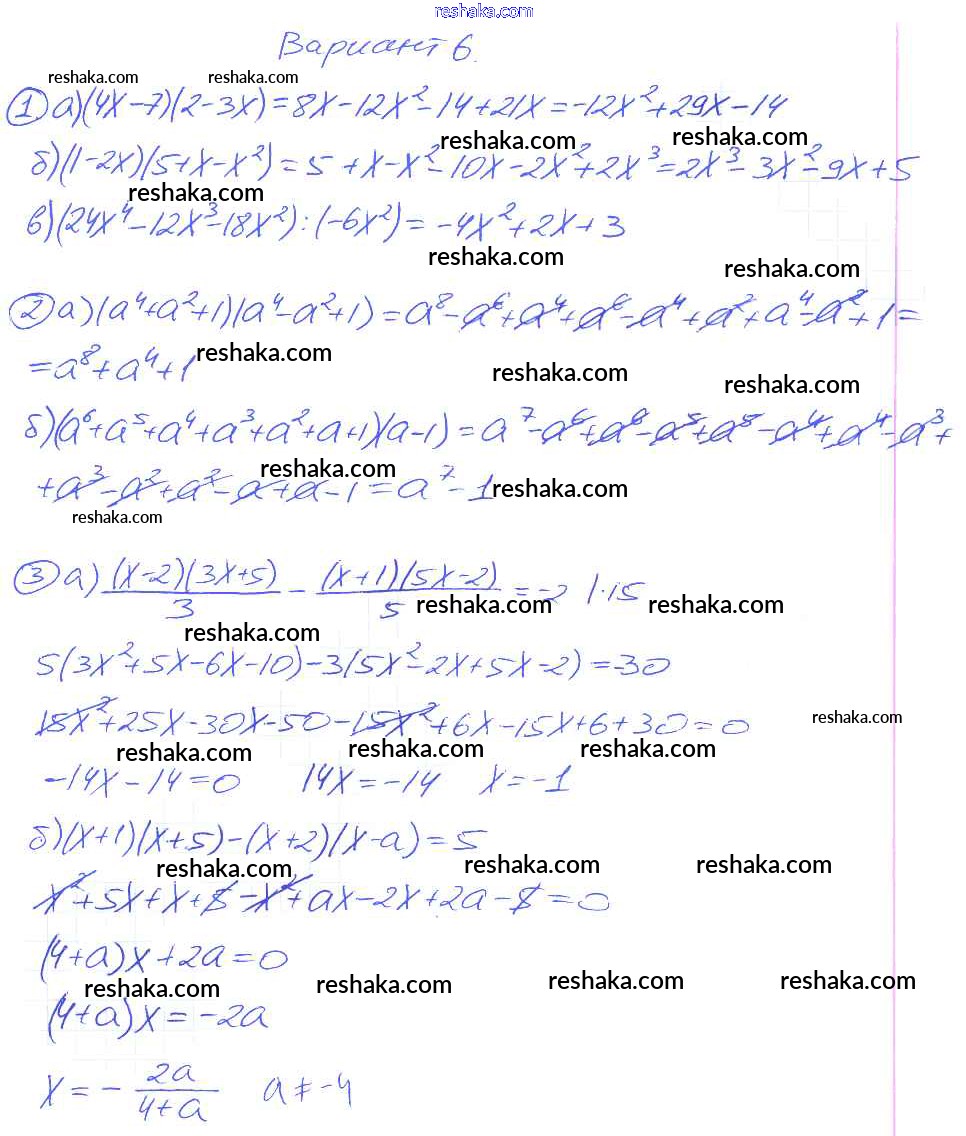 reshaka.com
Вариант 6.
reshaka.com reshaka.com
① а) (4x-7)(2-3x)=8x-12x²-14+21x=-12x²+29x-14
reshaka.com reshaka.com
б) (1-2x)(5+x-x²)=5+x-x²-10x-2x²+2x³=2x³-3x²-9x+5
reshaka.com
в) (24x⁴-12x³-18x²):(-6x²)=-4x²+2x+3
reshaka.com
reshaka.com
② а) (a⁴+a²+1)(a⁴-a²+1)=a⁸-a⁶+a⁴+a⁶-a⁴+a²+a⁴-a²+1=
=a⁸+a⁴+1
reshaka.com reshaka.com reshaka.com
б) (a⁶+a⁵+a⁴+a³+a²+a+1)(a-1)=a⁷-a⁶+a⁶-a⁵+a⁵-a⁴+a⁴-a³+
reshaka.com
+a³-a²+a²-a+a-1=a⁷-1
reshaka.com
reshaka.com
③ а) (x-2)(3x+5)/3 - (x+1)(5x-2)/5 =-2 |·15
reshaka.com reshaka.com
reshaka.com
5(3x²+5x-6x-10)-3(5x²-2x+5x-2)=-30
15x²+25x-30x-50-15x²+6x-15x+6+30=0
reshaka.com
reshaka.com reshaka.com reshaka.com
-14x-14=0 14x=-14 x=-1
б) (x+1)(x+5)-(x+2)(x-a)=5
reshaka.com reshaka.com reshaka.com
x²+5x+x+5-x²+ax-2x+2a-5=0
(4+a)x+2a=0
reshaka.com reshaka.com reshaka.com reshaka.com
(4+a)x=-2a
x=- 2a/(4+a) a≠-4